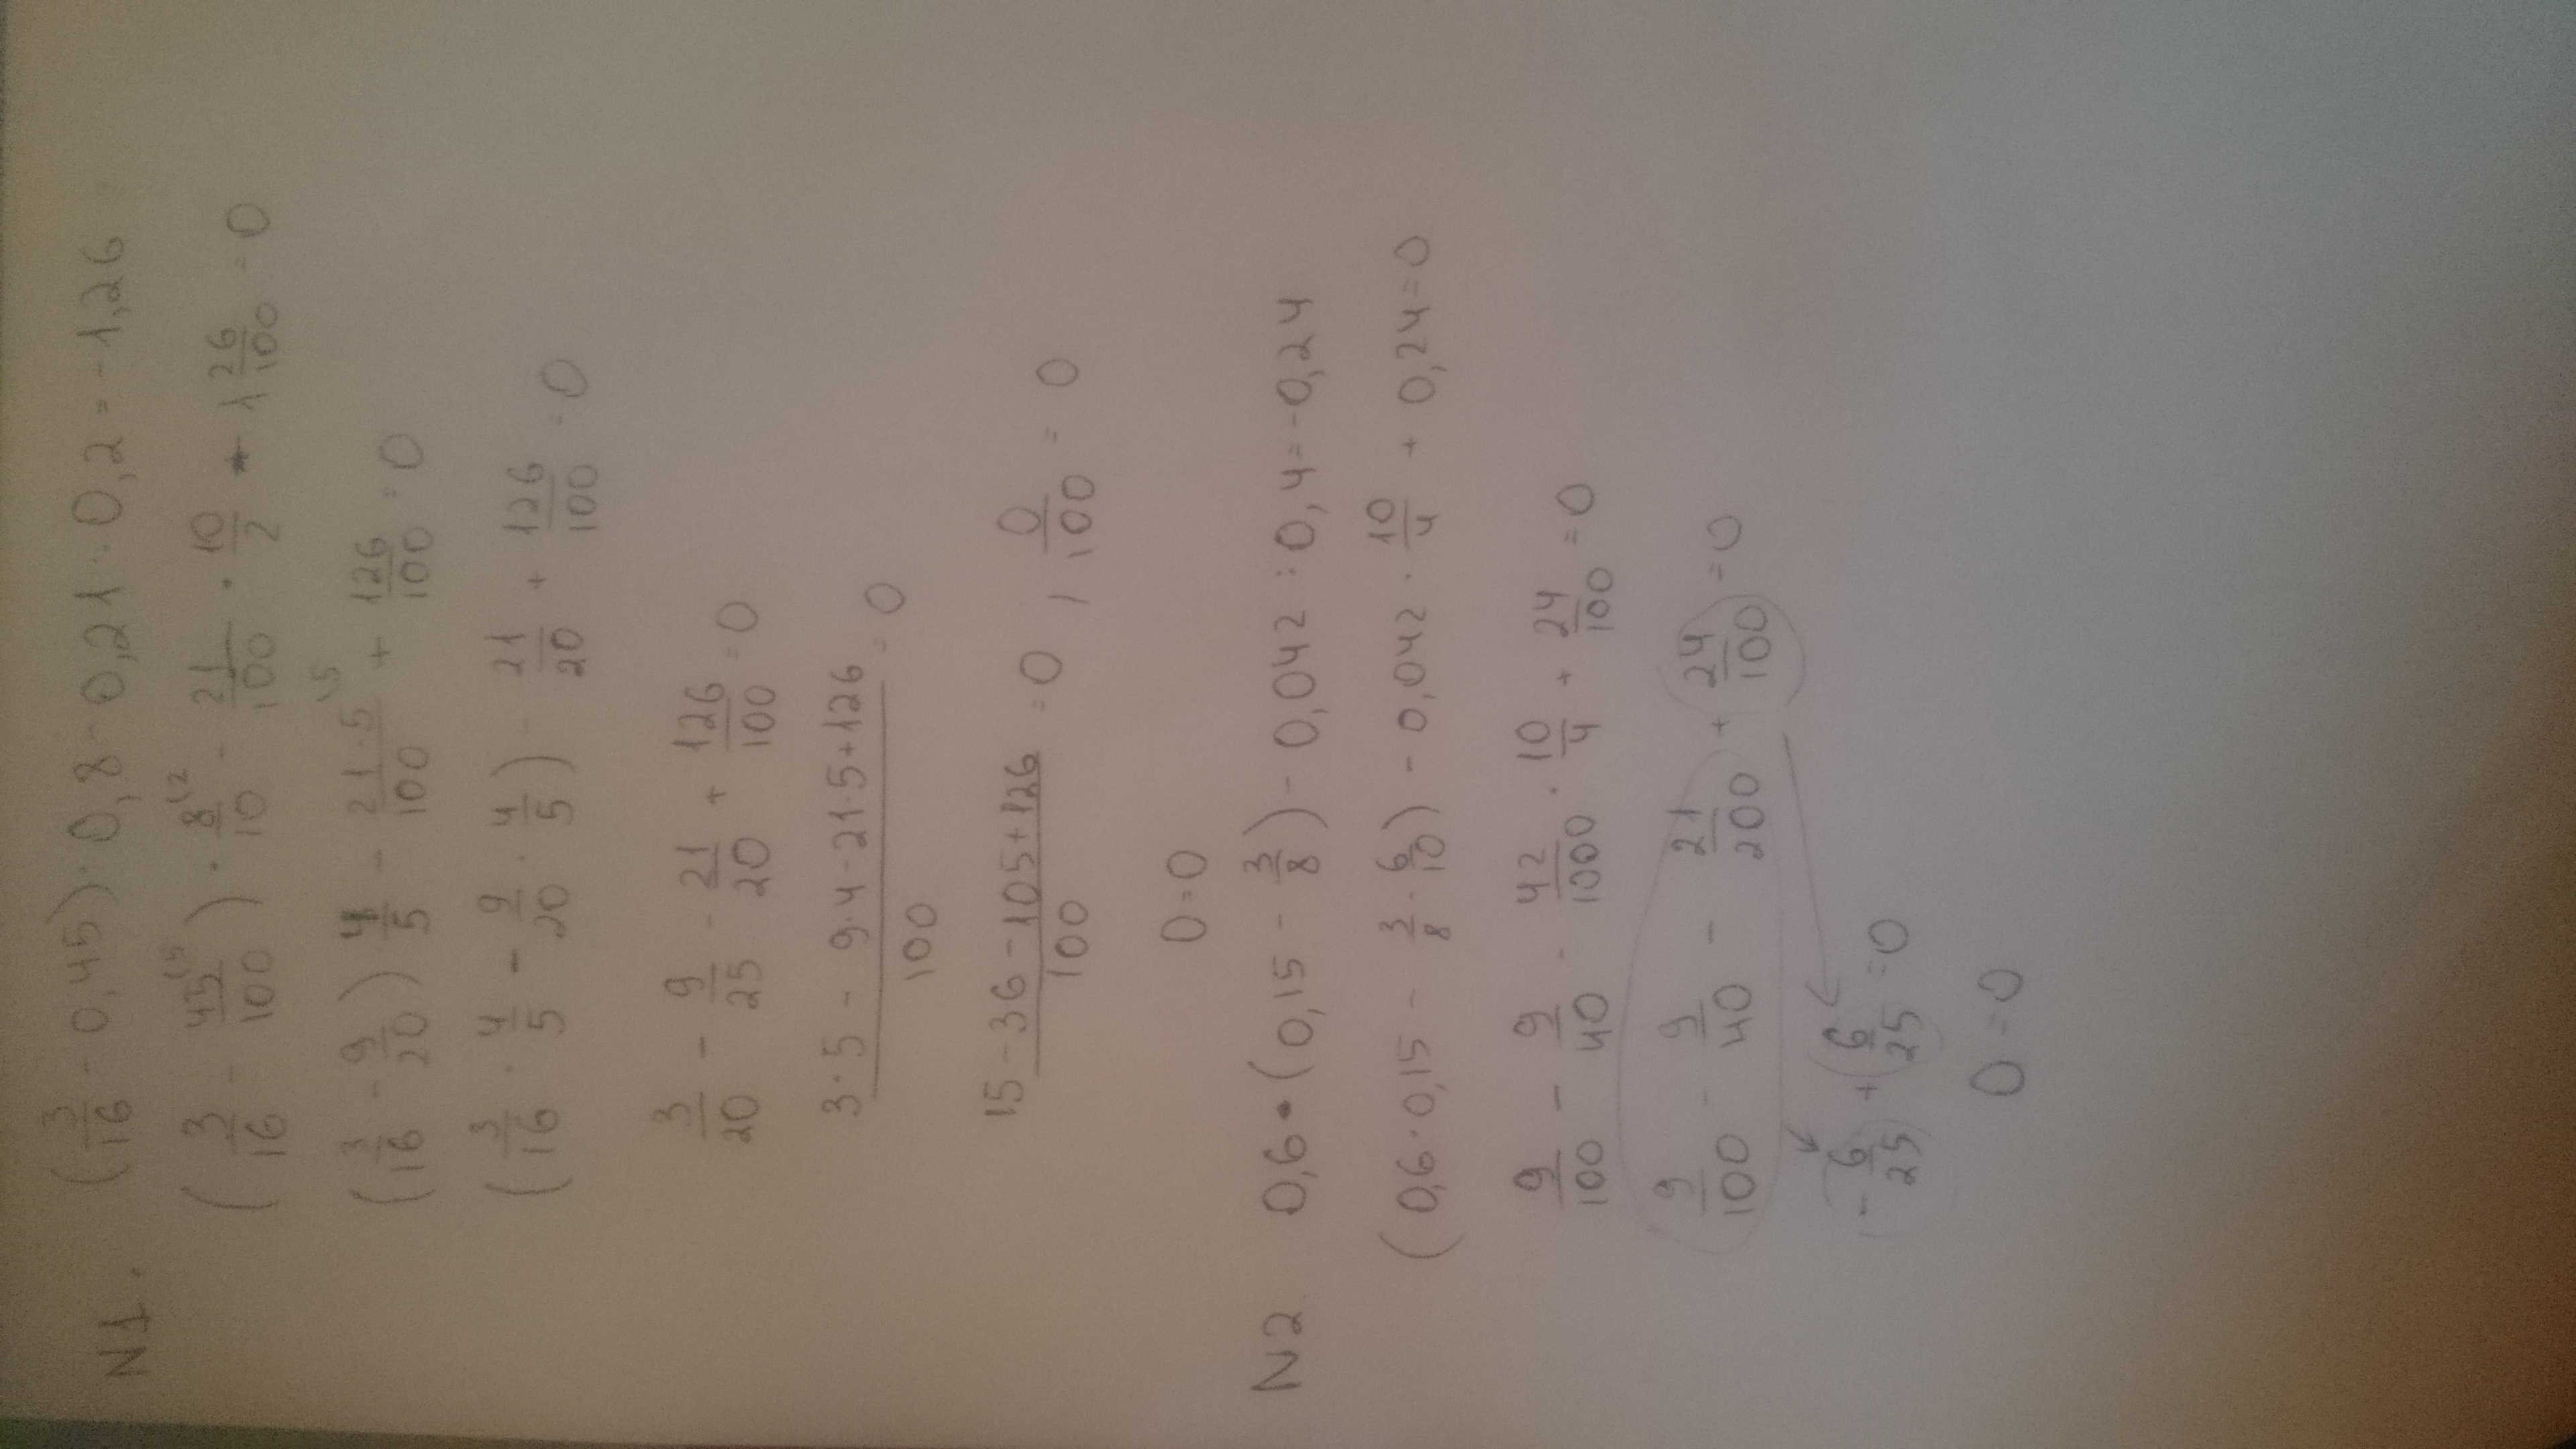 N1. (3/16 - 0,45) · 0,8 - 0,21 : 0,2 = -1,26
(3/16 - 45/100) · 8/10 - 21/100 · 10/2 + 1 26/100 = 0
(3/16 - 9/20) 4/5 - 21·5/100 + 126/100 = 0
(3/16 · 4/5 - 9/20 · 4/5) - 21/20 + 126/100 = 0
3/20 - 9/25 - 21/20 + 126/100 = 0
3·5 - 9·4 - 21·5 + 126/100 = 0
15 - 36 - 105 + 126/100 = 0, 0/100 = 0
0 = 0
N2 0,6 · (0,15 - 3/8) - 0,042 : 0,4 = -0,24
(0,6 · 0,15 - 3/8 · 6/10) - 0,042 · 10/4 + 0,24 = 0
9/100 - 9/40 - 42/1000 · 10/4 + 24/100 = 0
9/100 - 9/40 - 21/200 + 24/100 = 0
- 6/25 + 6/25 = 0
0 = 0